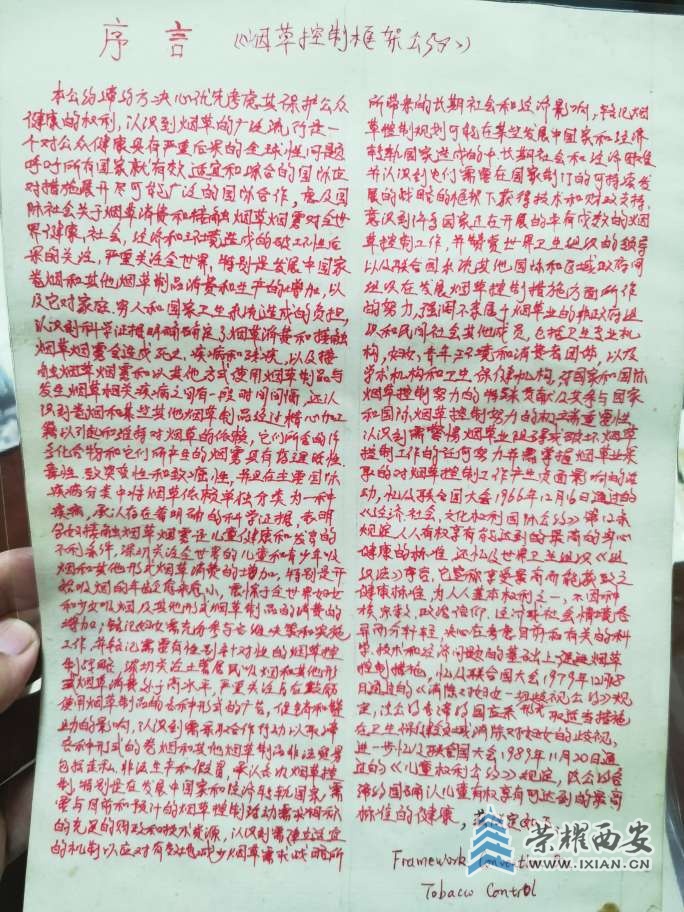 序言 《烟草控制框架公约》
本公约缔约方决心优先考虑其保护公众
健康的权利，认识到烟草的广泛流行是一
个对公众健康具有严重后果的全球性问题
呼吁所有国家就有效、适宜和综合的国际应
对措施展开尽可能广泛的国际合作，虑及国
际社会关于烟草消费和接触烟草烟雾对全世
界健康、社会，经济和环境造成的破坏性后
果的关注，严重关注全世界，特别是发展中国家
卷烟和其他烟草制品消费和生产的增加，以
及它对家庭、穷人和国家卫生系统造成的负担，
认识到科学证据明确确定了烟草消费和接触
烟草烟雾会造成死亡、疾病和残疾，以及接
触烟草烟雾和以其他方式使用烟草制品与
发生烟草相关疾病之间有一段时间间隔，还认
识到卷烟和某些其他烟草制品经过精心加工
籍以引起和维持对烟草的依赖，它们所含的许
多化合物和它们所产生的烟雾具有药理活性、
毒性、致突变性和致癌性，并且在主要国际
疾病分类中将烟草依赖单独分类为一种
疾病，承认存在着明确的科学证据，表明
孕妇接触烟草烟雾是儿童健康和发育的
不利条件，深切关注全世界的儿童和青少年吸
烟和其他形式烟草消费的增加，特别是开
始吸烟的年龄愈来愈小，震惊于全世界妇女
和少女吸烟及其他形式烟草制品的消费的
增加，铭记妇女需充分参与各级决策和实施
工作，并铭记需要有性别针对性的烟草控
制战略，深切关注土著居民吸烟和其他形
式烟草消费处于高水平，严重关注旨在鼓励
使用烟草制品的各种形式的广告、促销和赞
助的影响，认识到需采取合作行动以取缔
各种形式的卷烟和其他烟草制品非法贸易
包括走私、非法生产和假冒，承认各级烟草控
制，特别是在发展中国家和经济转轨国家，需
要与目前和预计的烟草控制活动需求相称
的充足的财政和技术资源，认识到需建立适宜
的机制以应对有效地减少烟草需求战略所
所带来的长期社会和经济影响，铭记烟
草控制规划可能在某些发展中国家和经济
转轨国家造成的中、长期社会和经济困难
并认识到它们需要在国家制订的可持续发
展的战略的框架下获得技术和财政支持，
意识到许多国家正在开展的卓有成效的烟
草控制工作，并赞赏世界卫生组织的领导
以及联合国系统其他国际和区域政府间
组织在发展烟草控制措施方面所作
的努力，强调不隶属于烟草业的非政府组
织和民间社会其他成员，包括卫生专业机
构，妇女，青年、环境和消费者团体，以及
学术机构和卫生保健机构，对国家和国际
烟草控制努力的特殊贡献及其参与国家
和国际烟草控制努力的极端重要性，
认识到需警惕烟草业阻碍或破坏烟草
控制工作的任何努力并需掌握烟草业采
取的对烟草控制工作产生负面影响的活
动，忆及联合国大会1966年12月16日通过的
《经济、社会、文化权利国际公约》第12条
规定人人有权享有能达到的最高的身心
健康的标准，还忆及世界卫生组织《组
织法》序言，它宣称享受最高而能获致之
健康标准，为人人基本权利之一，不因种
族、宗教，政治信仰、经济或社会情境各
异而分轩轾，决心在考虑目前和有关的科
学、技术和经济问题的基础上促进烟草
控制措施，忆及联合国大会1979年12月18
日通过的《消除对妇女一切歧视公约》规
定，该公约各缔约国应采取适当措施
在卫生保健领域消除对妇女的歧视，
进一步忆及联合国大会1989年11月20日通
过的《儿童权利公约》规定，该公约各
缔约国确认儿童有权享有可达到的最高
标准的健康，兹议定如下
Framework Convention on
Tobacco Control
荣耀西安
WWW.IXIAN.CN